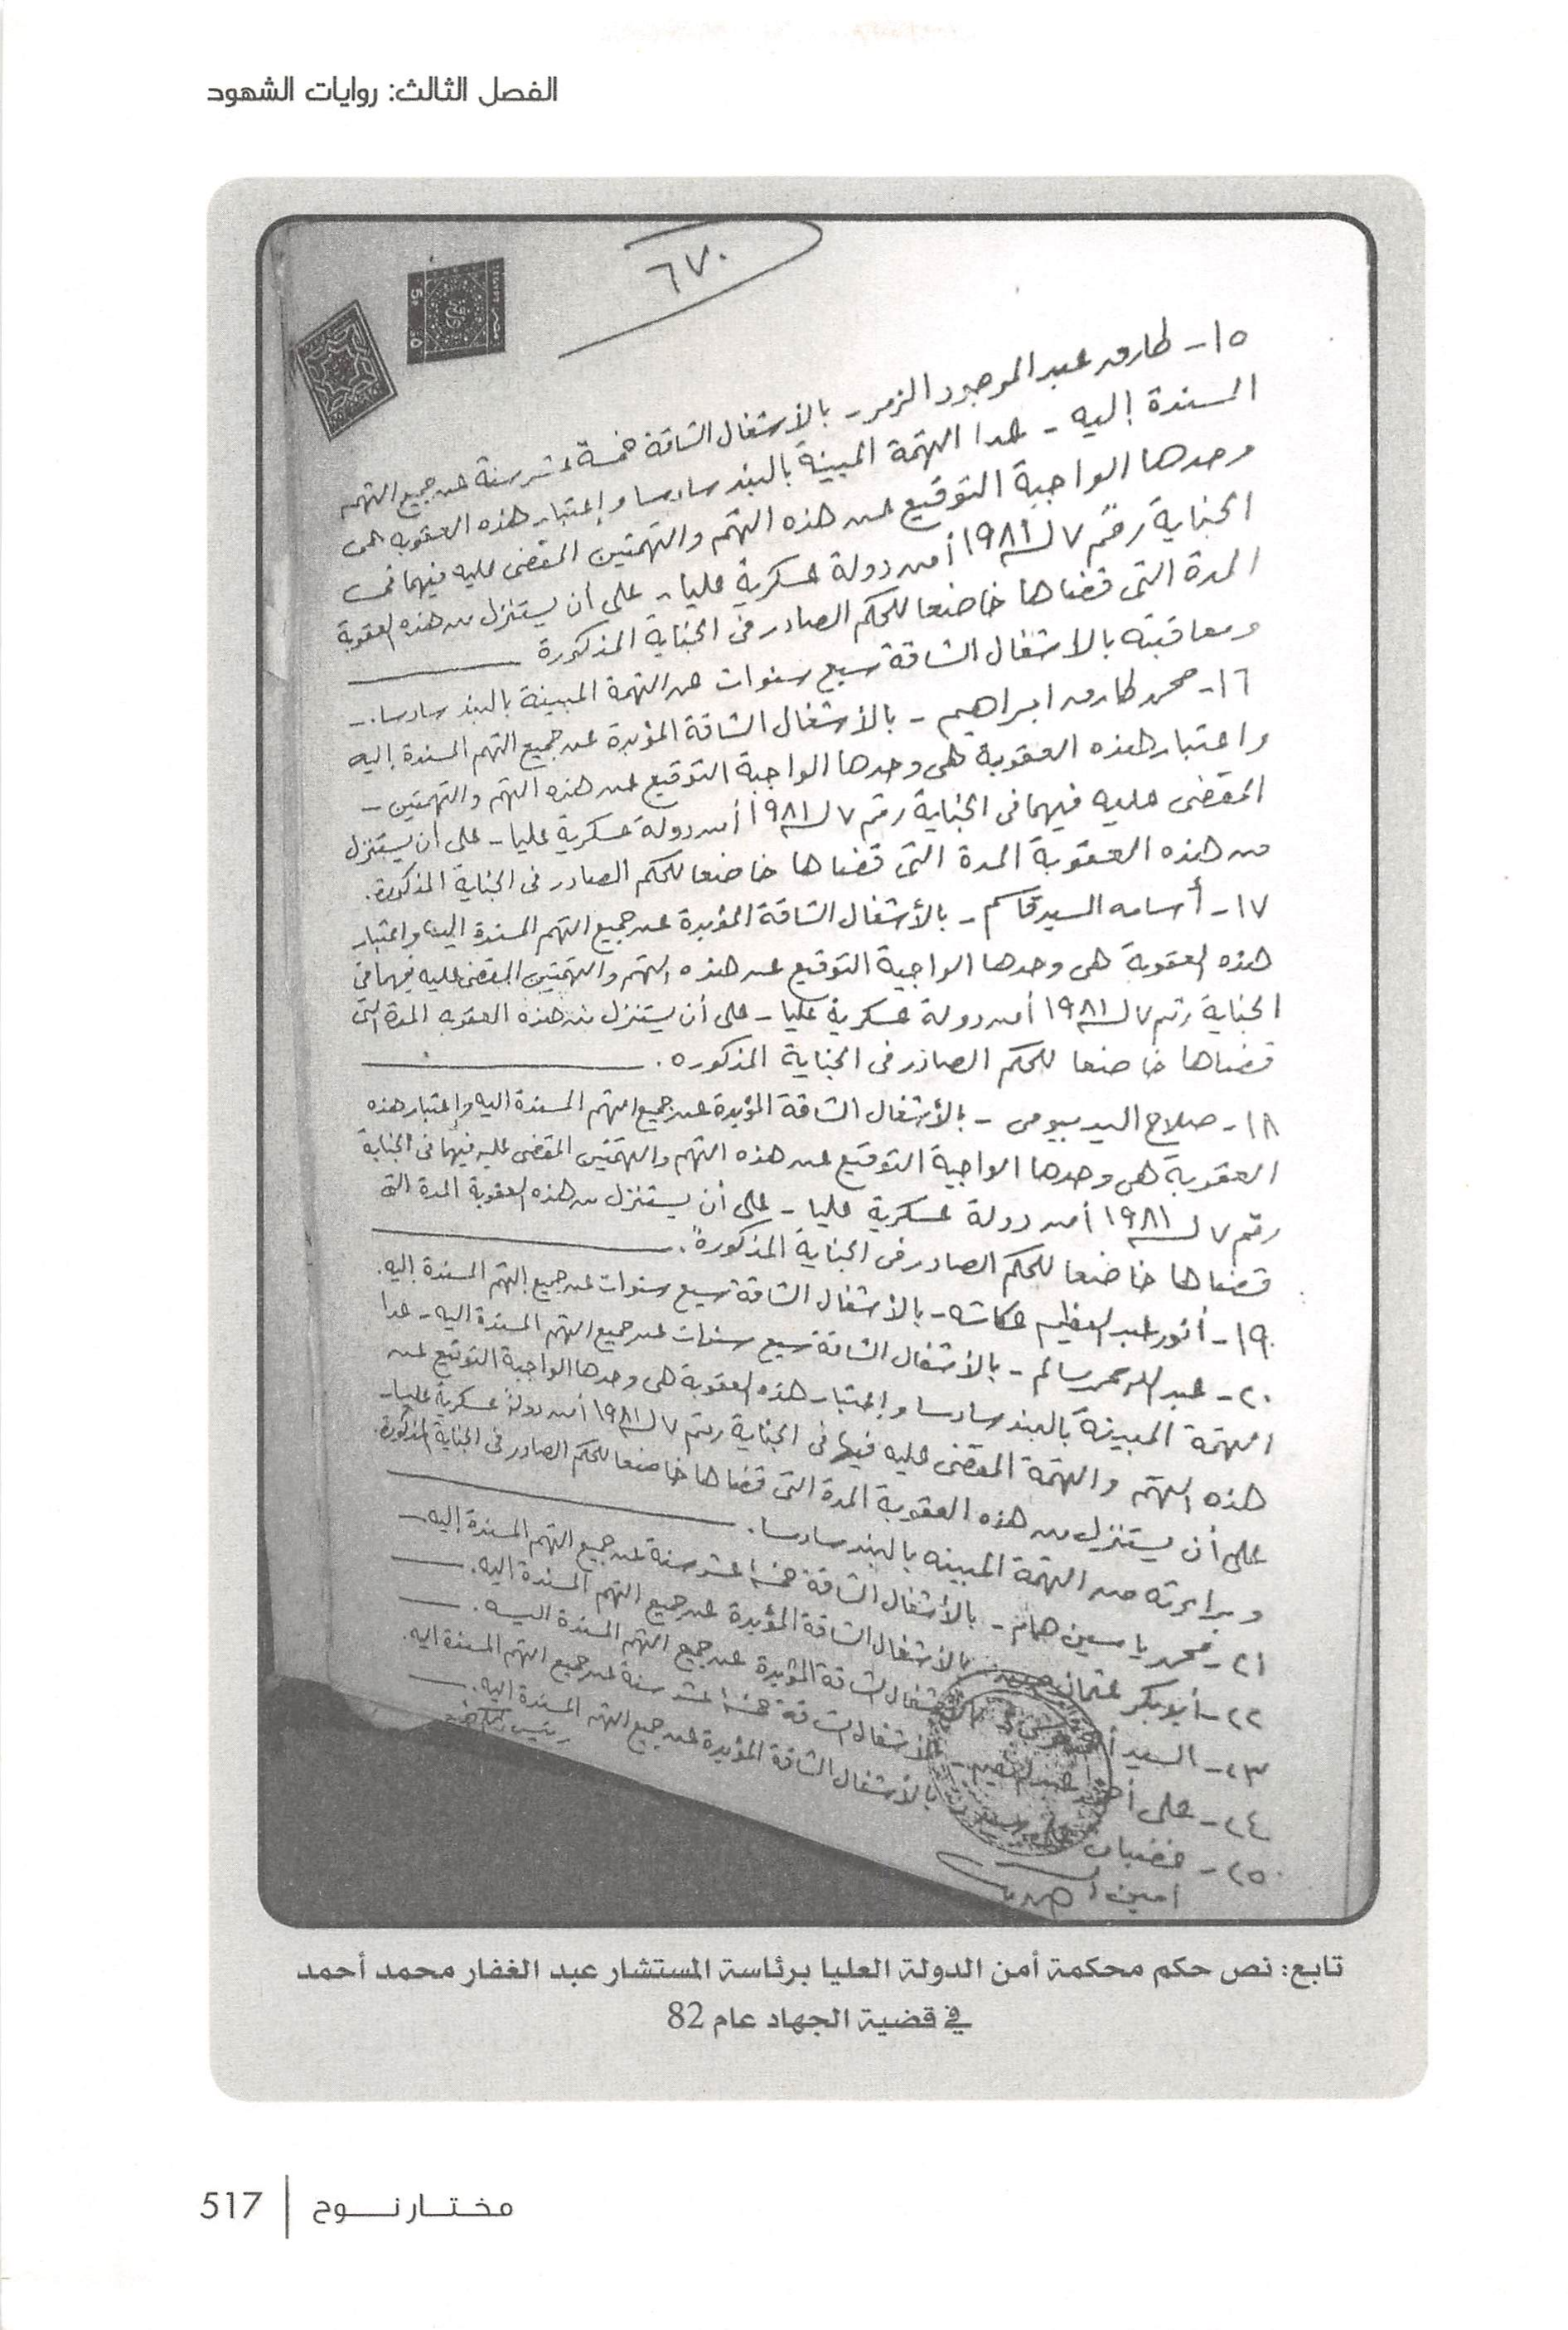 الفصل الثالث: روايات الشهود
٦٧٠
١٥- طارق عبد الموجود الزمر - بالأشغال الشاقة خمسة عشر سنة عن جميع التهم
المسندة إليه - عدا التهمة المبينة بالبند سادسا وإعتبار هذه العقوبة هى
وحدها الواجبة التوقيع عن هذه التهم والتهمتين المقضى عليه فيهما فى
الجناية رقم ٧ لسنة ١٩٨١ أمن دولة عسكرية عليا - على أن يستنزل من هذه العقوبة
المدة التى قضاها خاضعا للحكم الصادر فى الجناية المذكورة
ومعاقبته بالاشغال الشاقة سبع سنوات عن التهمة المبينة بالبند سادسا.-
١٦- محمد طارق ابراهيم - بالأشغال الشاقة المؤبدة عن جميع التهم المسندة إليه
واعتبار هذه العقوبة هى وحدها الواجبة التوقيع عن هذه التهم والتهمتين -
المقضى عليه فيهما فى الجناية رقم ٧ لسنة ١٩٨١ أمن دولة عسكرية عليا - على أن يستنزل
من هذه العقوبة المدة التى قضاها خاضعا للحكم الصادر فى الجناية المذكورة.
١٧- أسامه السيد قاسم - بالأشغال الشاقة المؤبدة عن جميع التهم المسندة اليه واعتبار
هذه العقوبة هى وحدها الواجبة التوقيع عن هذه التهم والتهمتين المقضى عليه فيهما فى
الجناية رقم ٧ لسنة ١٩٨١ أمن دولة عسكرية عليا - على أن يستنزل من هذه العقوبه المدة التى
قضاها خاضعا للحكم الصادر فى الجناية المذكوره.
١٨- صلاح السيد بيومى - بالأشغال الشاقة المؤبدة عن جميع التهم المسندة اليه وإعتبار هذه
العقوبة هى وحدها الواجبة التوقيع عن هذه التهم والتهمتين المقضى عليه فيهما فى الجناية
رقم ٧ لسنة ١٩٨١ أمن دولة عسكرية عليا - على أن يستنزل من هذه العقوبة المدة التى
قضاها خاضعا للحكم الصادر فى الجناية المذكورة.
١٩- أنور عبد العظيم عكاشه - بالأشغال الشاقة سبع سنوات عن جميع التهم المسندة إليه.
٢٠- عبد الله محمد سالم - بالأشغال الشاقة سبع سنوات عن جميع التهم المسندة اليه - عدا
التهمة المبينة بالبند سادسا وإعتبار هذه العقوبة هى وحدها الواجبة التوقيع عن
هذه التهم والتهمة المقضى عليه فيها فى الجناية رقم ٧ لسنة ١٩٨١ أمن دولة عسكرية عليا -
على أن يستنزل من هذه العقوبة المدة التى قضاها خاضعا للحكم الصادر فى الجناية المذكورة.
وبراءته من التهمة المبينه بالبند سادسا.
٢١- محمد ياسين همام - بالأشغال الشاقة خمسة عشر سنة عن جميع التهم المسندة إليه -
٢٢- أبو بكر عثمان - بالأشغال الشاقة المؤبدة عن جميع التهم المسندة اليه.
٢٣- السيد - بالأشغال الشاقة المؤبدة عن جميع التهم المسندة اليه.
٢٤- على أحمد - بالأشغال الشاقة خمسة عشر سنة عن جميع التهم المسندة اليه.
٢٥- غضبان - بالأشغال الشاقة المؤبدة عن جميع التهم المسندة اليه.
أمين
رئيس
تابع: نص حكم محكمة أمن الدولة العليا برئاسة المستشار عبد الغفار محمد أحمد
في قضية الجهاد عام 82
مختار نوح | 517